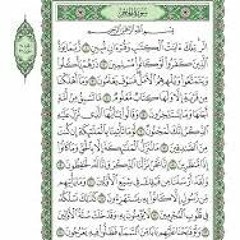 سُورَةُ الحِجْرِ
بِسْمِ ٱللَّهِ ٱلرَّحْمَٰنِ ٱلرَّحِيمِ
الٓر ۚ تِلْكَ ءَايَٰتُ ٱلْكِتَٰبِ وَقُرْءَانٍ مُّبِينٍ ١ رُّبَمَا يَوَدُّ
ٱلَّذِينَ كَفَرُوا۟ لَوْ كَانُوا۟ مُسْلِمِينَ ٢ ذَرْهُمْ يَأْكُلُوا۟
وَيَتَمَتَّعُوا۟ وَيُلْهِهِمُ ٱلْأَمَلُ ۖ فَسَوْفَ يَعْلَمُونَ ٣ وَمَآ أَهْلَكْنَا
مِن قَرْيَةٍ إِلَّا وَلَهَا كِتَابٌ مَّعْلُومٌ ٤ مَّا تَسْبِقُ مِنْ أُمَّةٍ
أَجَلَهَا وَمَا يَسْتَـْٔخِرُونَ ٥ وَقَالُوا۟ يَٰٓأَيُّهَا ٱلَّذِى نُزِّلَ عَلَيْهِ
ٱلذِّكْرُ إِنَّكَ لَمَجْنُونٌ ٦ لَّوْ مَا تَأْتِينَا بِٱلْمَلَٰٓئِكَةِ إِن كُنتَ
مِنَ ٱلصَّٰدِقِينَ ٧ مَا نُنَزِّلُ ٱلْمَلَٰٓئِكَةَ إِلَّا بِٱلْحَقِّ وَمَا كَانُوٓا۟
إِذًا مُّنظَرِينَ ٨ إِنَّا نَحْنُ نَزَّلْنَا ٱلذِّكْرَ وَإِنَّا لَهُۥ لَحَٰفِظُونَ ٩
وَلَقَدْ أَرْسَلْنَا مِن قَبْلِكَ فِى شِيَعِ ٱلْأَوَّلِينَ ١٠ وَمَا يَأْتِيهِم
مِّن رَّسُولٍ إِلَّا كَانُوا۟ بِهِۦ يَسْتَهْزِءُونَ ١١ كَذَٰلِكَ نَسْلُكُهُۥ
فِى قُلُوبِ ٱلْمُجْرِمِينَ ١٢ لَا يُؤْمِنُونَ بِهِۦ ۖ وَقَدْ خَلَتْ سُنَّةُ ٱلْأَوَّلِينَ ١٣
وَلَوْ فَتَحْنَا عَلَيْهِم بَابًا مِّنَ ٱلسَّمَآءِ فَظَلُّوا۟ فِيهِ يَعْرُجُونَ ١٤